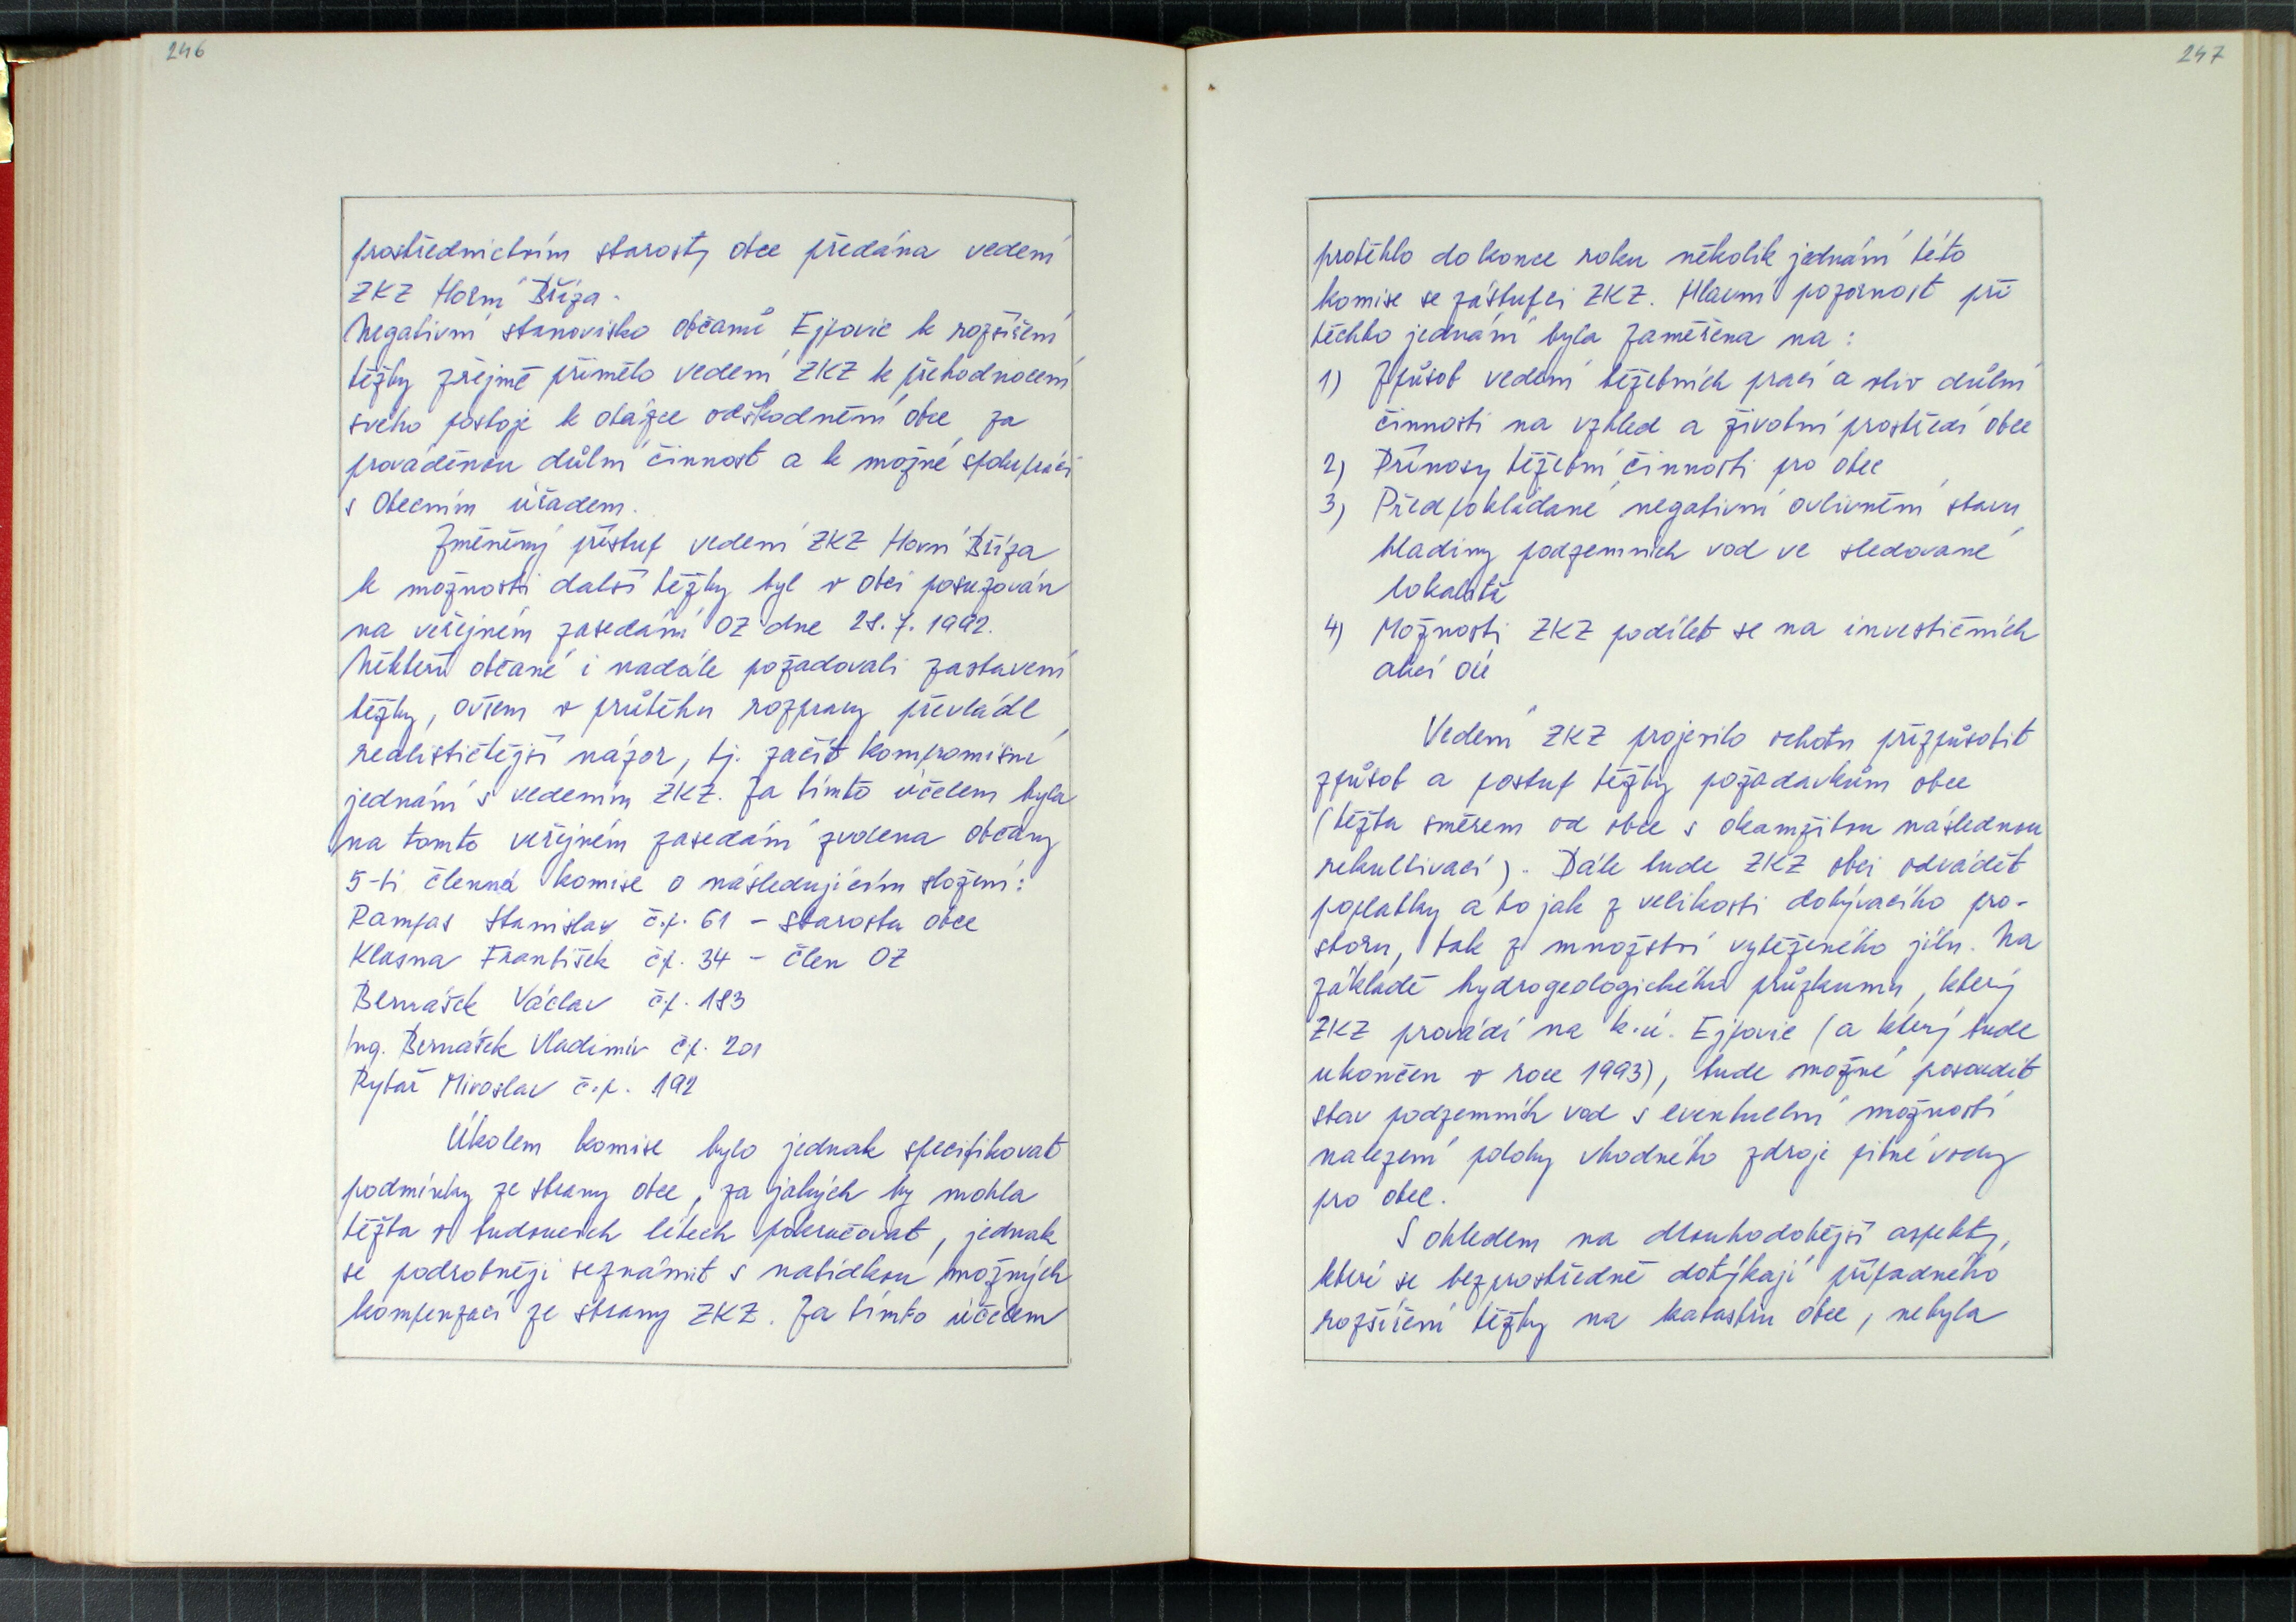 246
prostřednictvím starosty obce předána vedení
ZKZ Horní Bříza.
Negativní stanovisko občanů Ejpovic k rozšíření
těžby zřejmě přimělo vedení ZKZ k přehodnocení
svého postoje k otázce odškodnění obce za
prováděnou důlní činnost a k možné spolupráci
s Obecním úřadem.
Změněný přístup vedení ZKZ Horní Bříza
k možnosti další těžby byl v obci posuzován
na veřejném zasedání OZ dne 28. 7. 1992.
Někteří občané i nadále požadovali zastavení
těžby, ovšem v průběhu rozpravy převládl
realističtější názor, tj. začít kompromisní
jednání s vedením ZKZ. Za tímto účelem byla
na tomto veřejném zasedání zvolena občany
5-ti členná komise o následujícím složení:
Rampas Stanislav č.p. 61 - starosta obce
Klasna František čp. 34 - člen OZ
Bernášek Václav č.p. 183
Ing. Bernášek Vladimír č.p. 201
Rybář Miroslav č.p. 192
Úkolem komise bylo jednak specifikovat
podmínky ze strany obce, za jakých by mohla
těžba v budoucích létech pokračovat, jednak
se podrobněji seznámit s nabídkou možných
kompenzací ze strany ZKZ. Za tímto účelem
247
proběhlo do konce roku několik jednání této
komise se zástupci ZKZ. Hlavní pozornost při
těchto jednání byla zaměřena na:
1) Způsob vedení těžebních prací a vliv důlní
činnosti na vzhled a životní prostředí obce
2) Přínosy těžební činnosti pro obec
3) Předpokládané negativní ovlivnění stavu
hladiny podzemních vod ve sledované
lokalitě
4) Možnosti ZKZ podílet se na investičních
akcí OÚ
Vedení ZKZ projevilo ochotu přizpůsobit
způsob a postup těžby požadavkům obce
(těžba směrem od obce s okamžitou následnou
rekultivací). Dále bude ZKZ obci odvádět
poplatky a to jak z velikosti dobývacího pro-
storu, tak z množství vytěženého jílu. Na
základě hydrogeologického průzkumu, který
ZKZ provádí na k.ú. Ejpovic (a který bude
ukončen v roce 1993), bude možné posoudit
stav podzemních vod s eventuelní možností
nalezení polohy vhodného zdroje pitné vody
pro obec.
S ohledem na dlouhodobější aspekty,
které se bezprostředně dotýkají případného
rozšíření těžby na katastru obce, nebyla